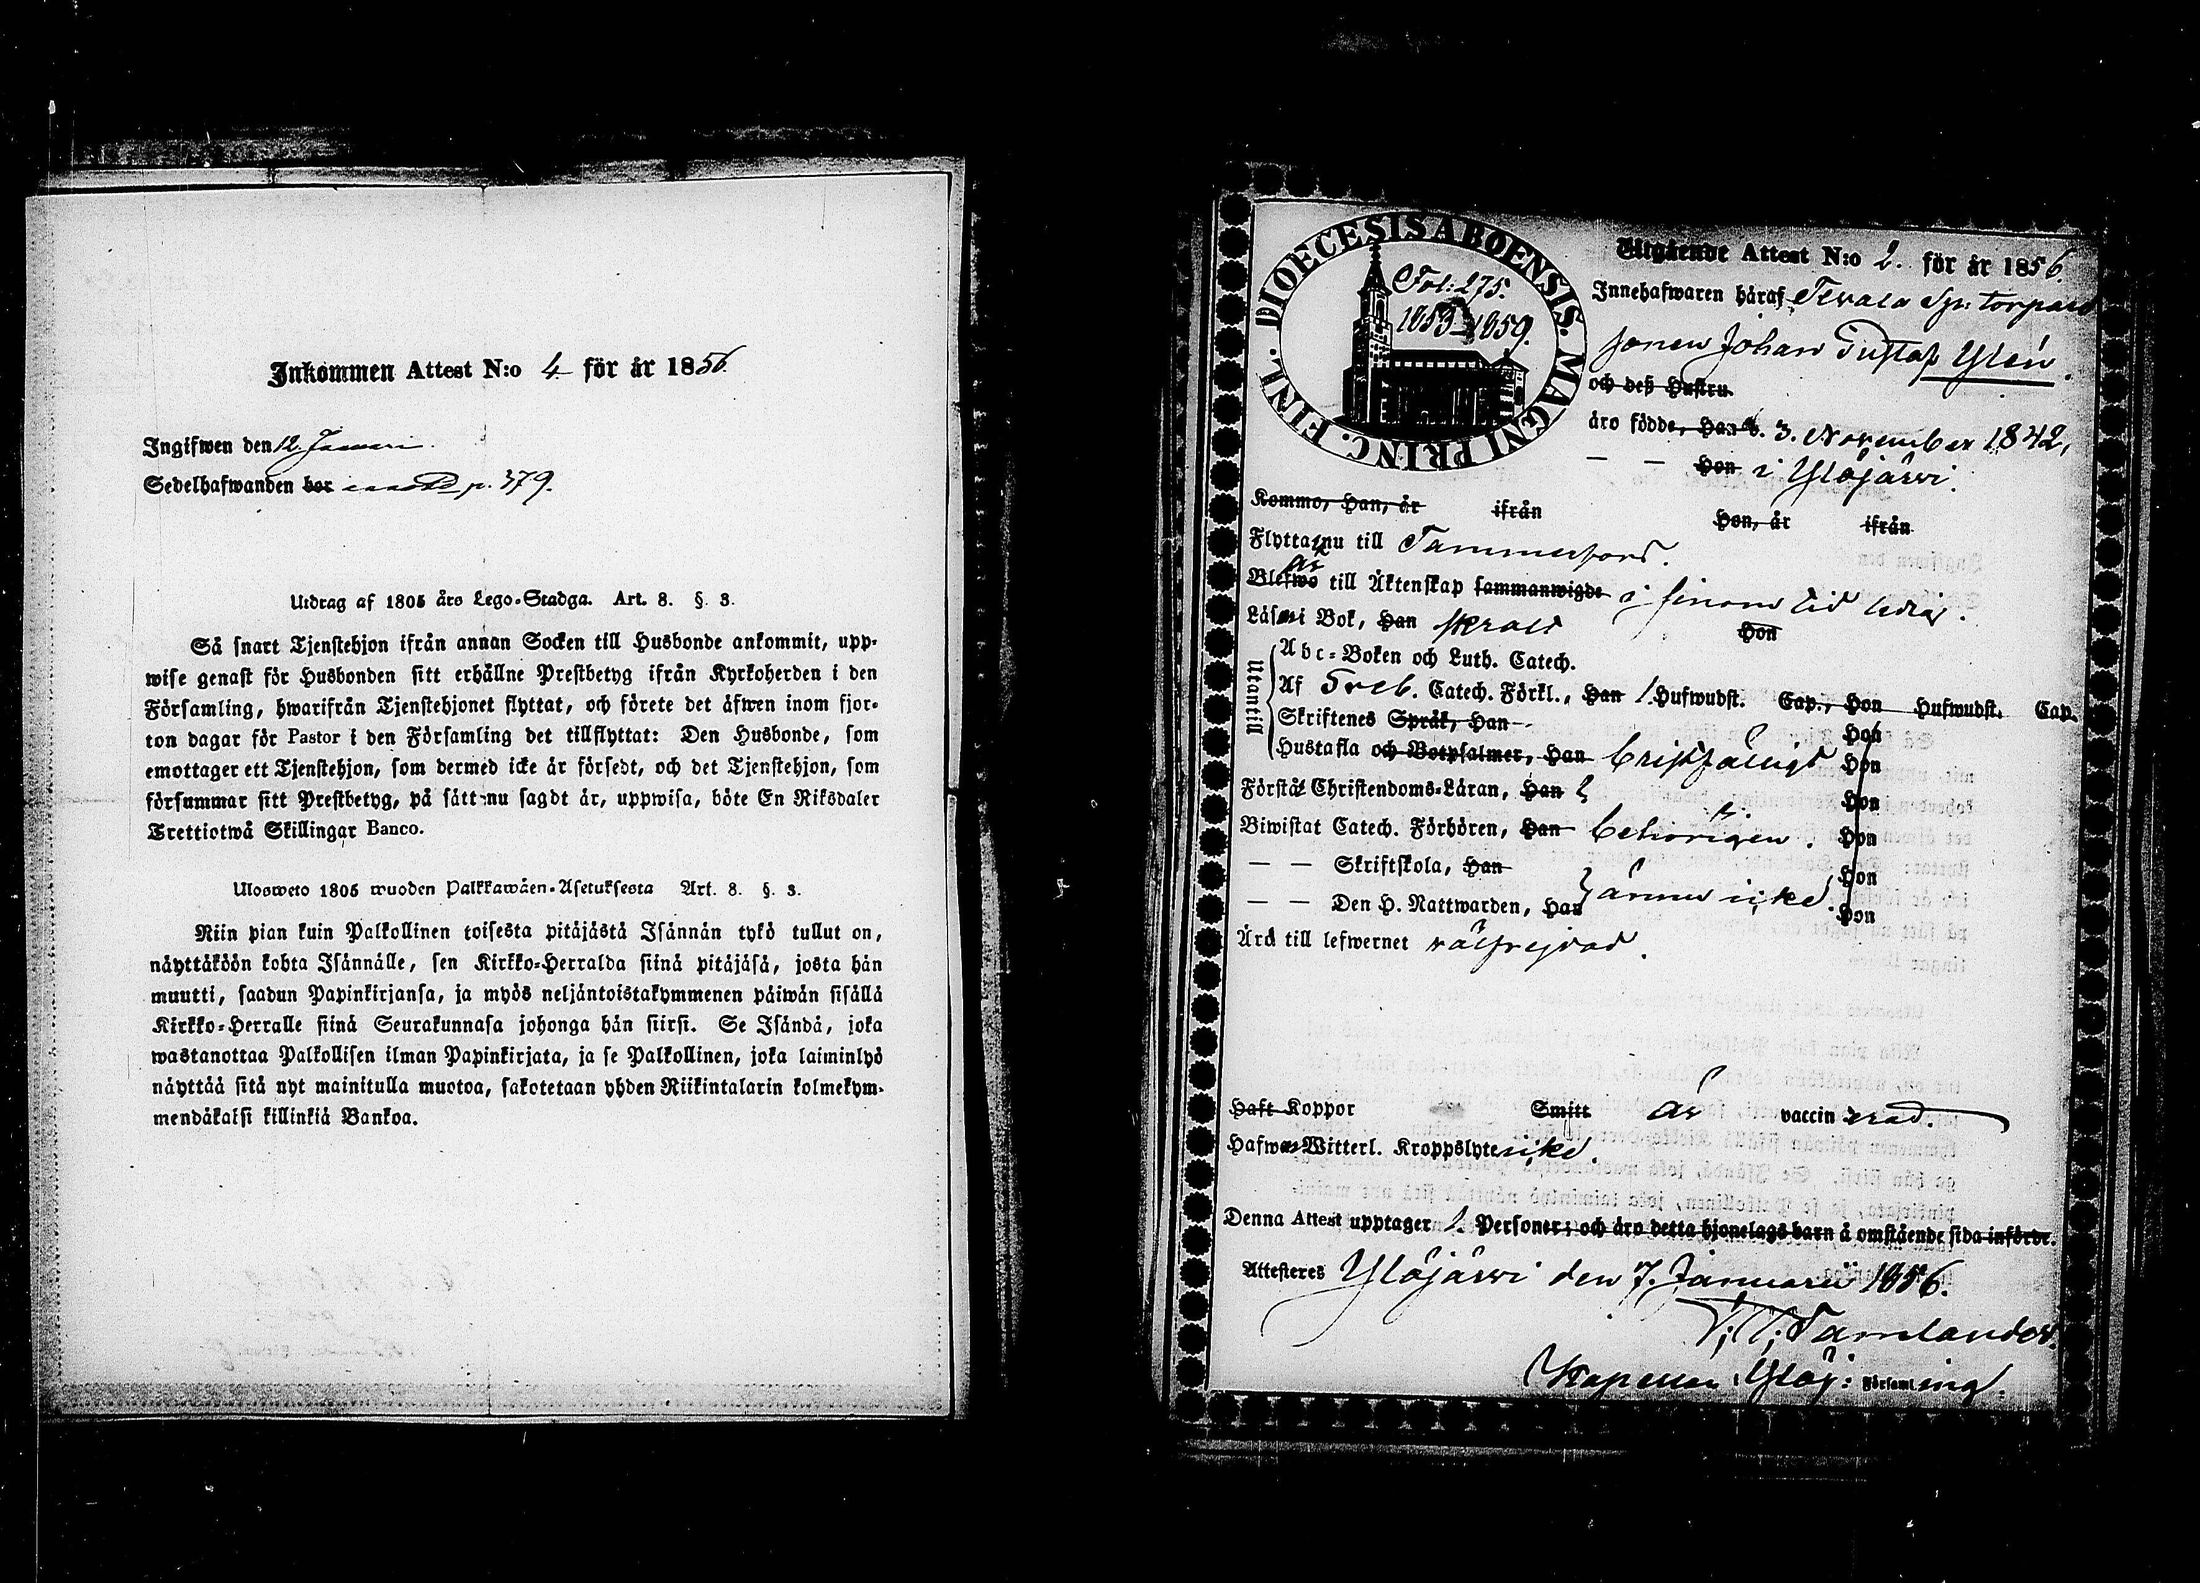 Inkommen Attest N:o 4 för år 1856.
Ingifwen den 12. Januari.
Sedelhafwanden bor p. 379.
Utdrag af 1805 års Lego-Stadga. Art. 8. §. 3.
Så snart Tjenstehjon ifrån annan Socken till Husbonde ankommit, upp-
wise genast för Husbonden sitt erhållne Prestbetyg ifrån Kyrkoherden i den
Församling, hwarifrån Tjenstehjonet flyttat, och förete det äfwen inom fjor-
ton dagar för Pastor i den Församling det tillflyttat: Den Husbonde, som
emottager ett Tjenstehjon, som dermed icke är försedt, och det Tjenstehjon, som
försummar sitt Prestbetyg, på sätt nu sagdt är, uppwisa, böte En Riksdaler
Trettiotwå Skillingar Banco.
Ulosweto 1805 wuoden Palkkawäen-Asetuksesta Art. 8. §. 3.
Niin pian kuin Palkollinen toisesta pitäjästä Isännän tykö tullut on,
näyttäköön kohta Isännälle, sen Kirkko-Herralda siinä pitäjäsä, josta hän
muutti, saadun Papinkirjansa, ja myös neljäntoistakymmenen päiwän sisällä
Kirkko-Herralle siinä Seurakunnasa johonga hän siirsi. Se Isändä, joka
wastanottaa Palkollisen ilman Papinkirjata, ja se Palkollinen, joka laiminlyö
näyttää sitä nyt mainitulla muotoa, sakotetaan yhden Riikintalarin kolmekym-
mendäkaksi killinkiä Bankoa.
DIOECESIS ABOENSIS. MAGNI PRINC. FINL.
Fol: 275.
1853-1859.
Utgående Attest N:o 2. för år 1856.
Innehafwaren häraf Terala Sp: torpare
sonen Johan Gustaf Ylén.
och deß Hustru
äro födde, Han d. 3. November 1842,
— — Hon i Ylöjärvi.
Kommo, Han, år ifrån Hon, år ifrån
Flytta nu till Tammerfors.
Blefwo är till Äktenskap sammanwigde i sinom tid ledig.
Läsa i Bok, Han Hon
Utantill
Abc-Boken och Luth. Catech.
Af Sveb. Catech. Förkl., Han 1. Hufwudst. Cap., Hon Hufwudst. Cap.
Skriftenes Språk, Han Hon
Hustafla och Botpsalmer, Han bristfälligt Hon
Förstå Christendoms-Läran, Han Hon
Biwistat Catech. Förhören, Han behörigen. Hon
— — Skriftskola, Han Hon
— — Den H. Nattwarden, Han ännu icke. Hon
Äro till lefwernet välfrejdad.
Haft Koppor Smitt är vaccinerad.
Hafwa Witterl. Kroppslyte icke.
Denna Attest upptager 1. Personer; och äro detta hjonelags barn å omstående sida införde.
Attesteres Ylöjärvi den 7. Januarii 1856.
Tamlander.
Kapellan i Ylöj: Församling.